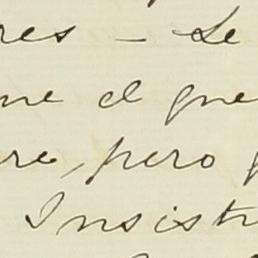 res - Se
me el que
re, pero
Insist